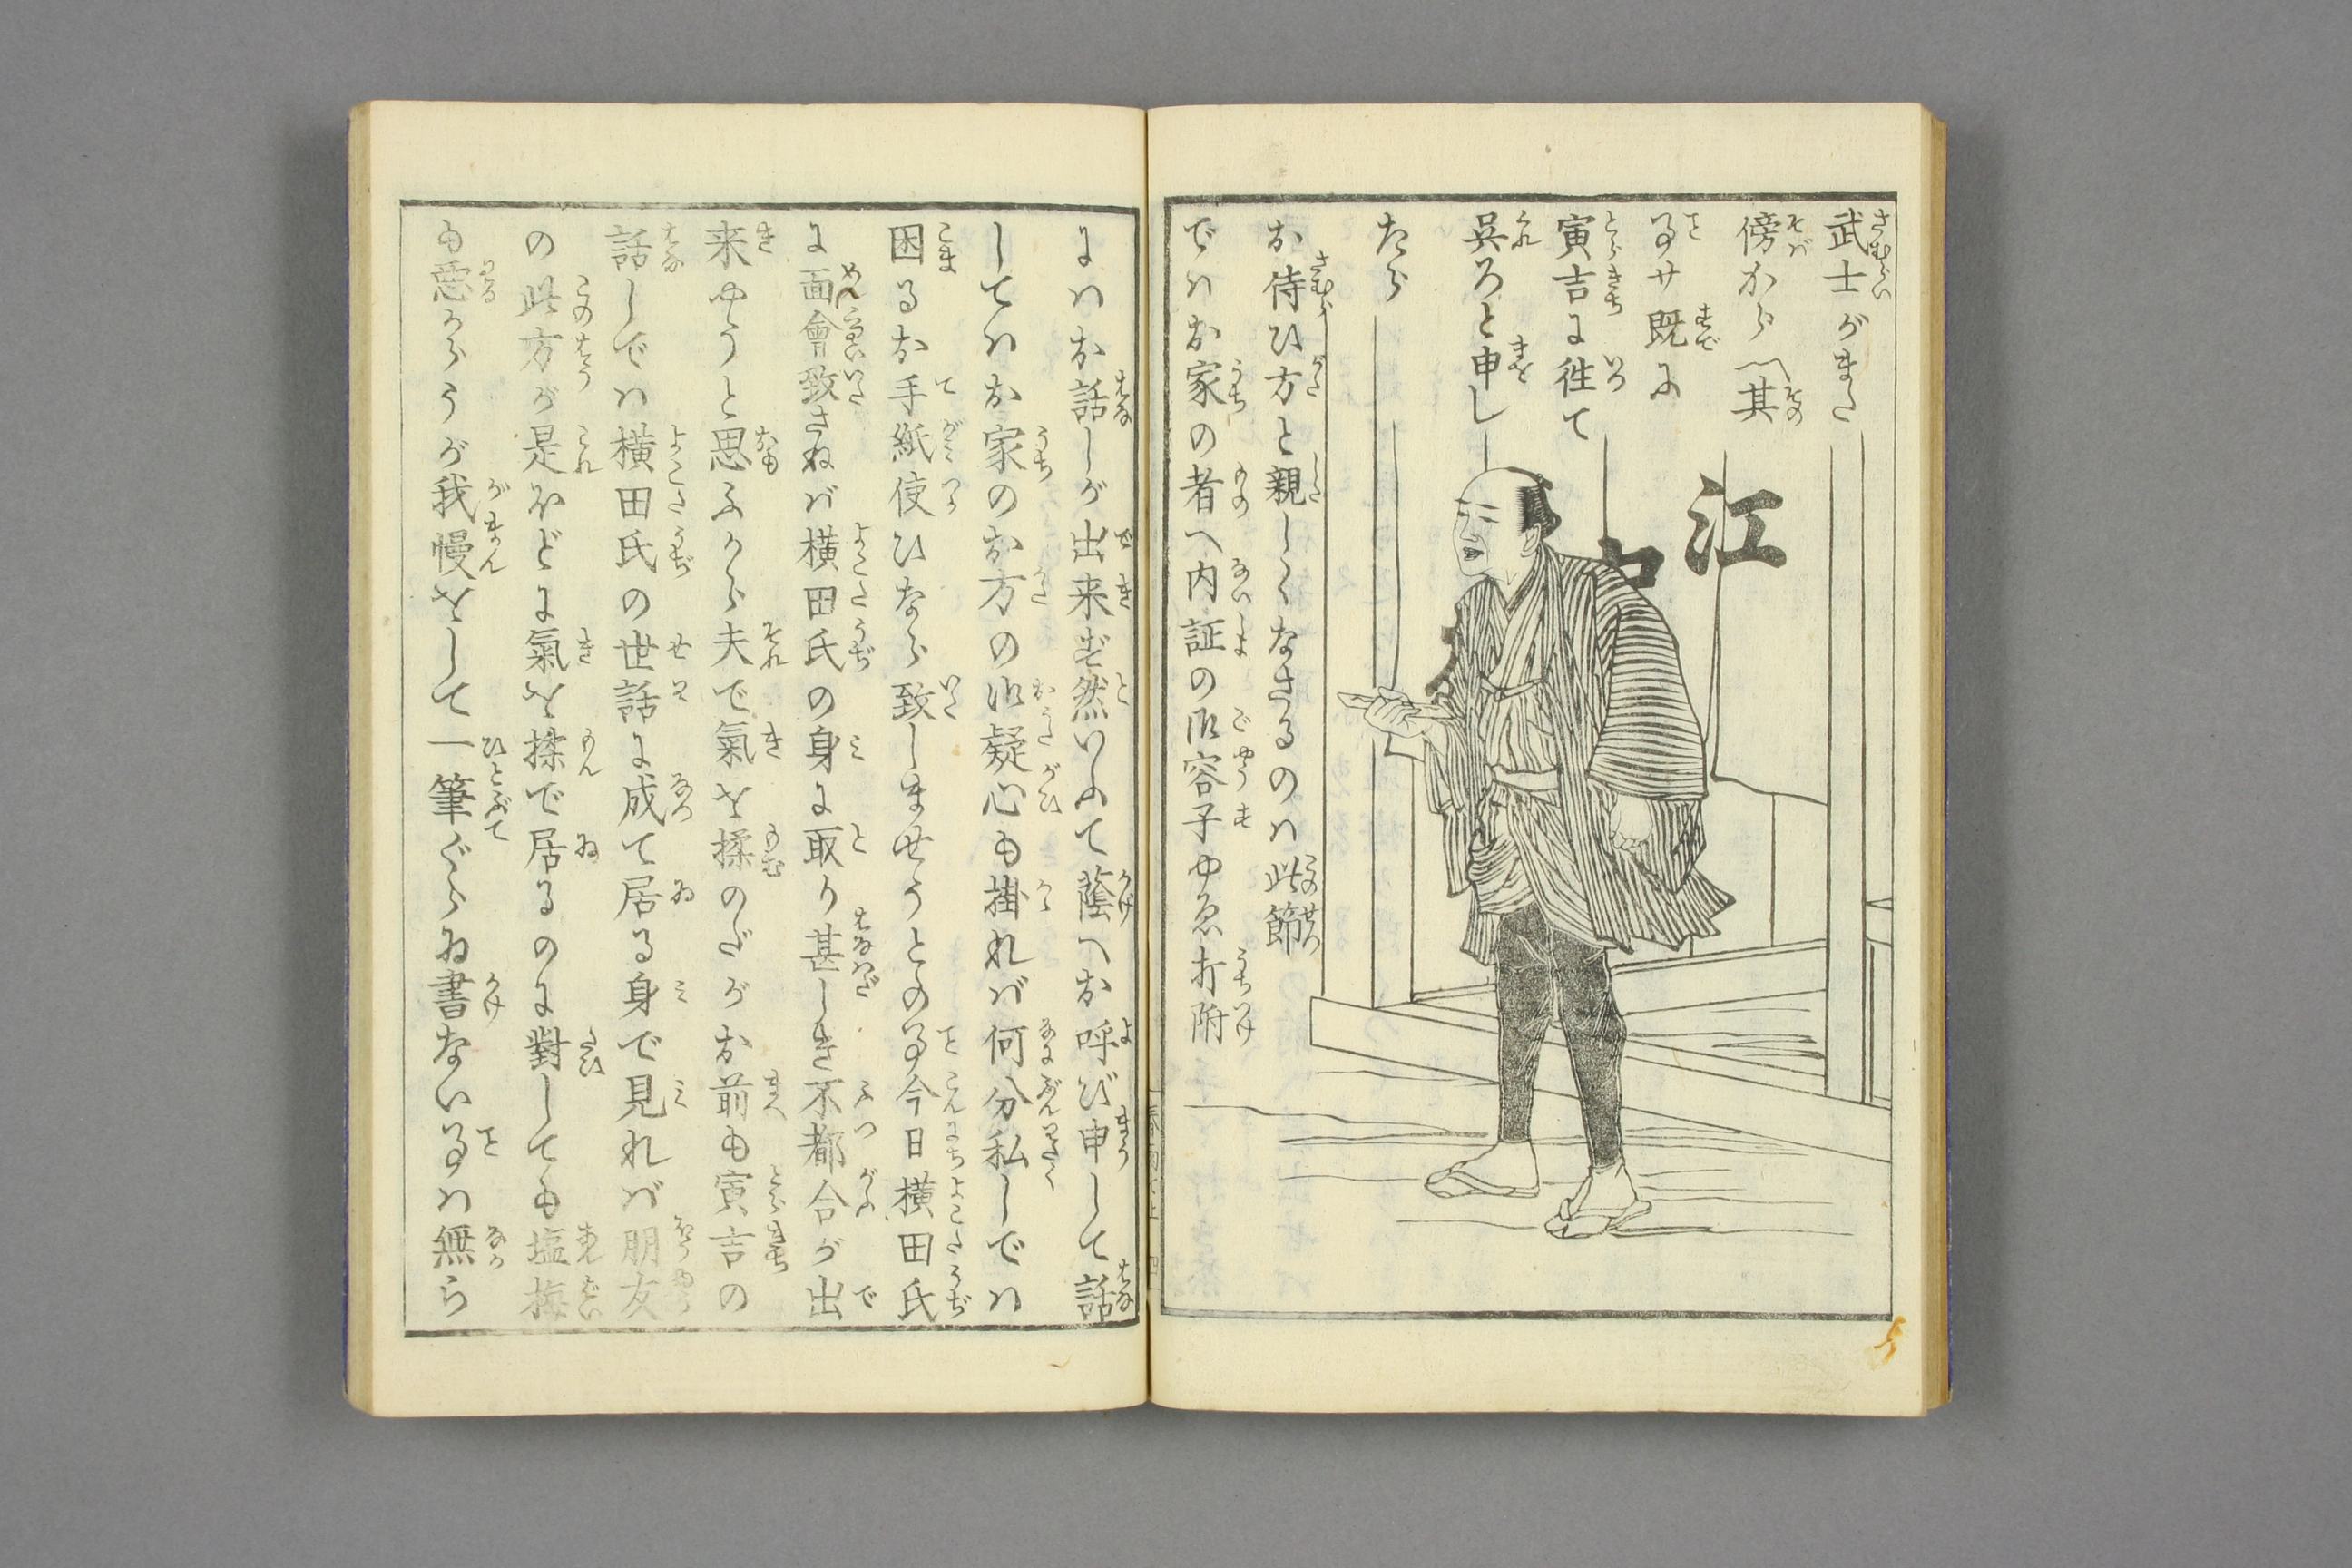 武士がまた
傍から〽其
事サ既に
寅吉に往て
呉ろと申し
たら
お侍ひ方と親しくなさるのハ此節
でハお家の者へ内証の御容子ゆゑ打附
江
にハお話しが出来ず然いふて蔭へお呼び申して話
してハお家のお方の御疑心も掛れバ何分私しでハ
困るお手紙使ひなら致しませうとの事今日横田氏
に面會致さねバ横田氏の身に取り甚しき不都合が出
来やうと思ふから夫で氣を揉のだがお前も寅吉の
話しでハ横田氏の世話に成て居る身で見れバ朋友
の此方が是ほどに氣を揉で居るのに對しても塩梅
も悪からうが我慢をして一筆ぐらゐ書ない事ハ無ら